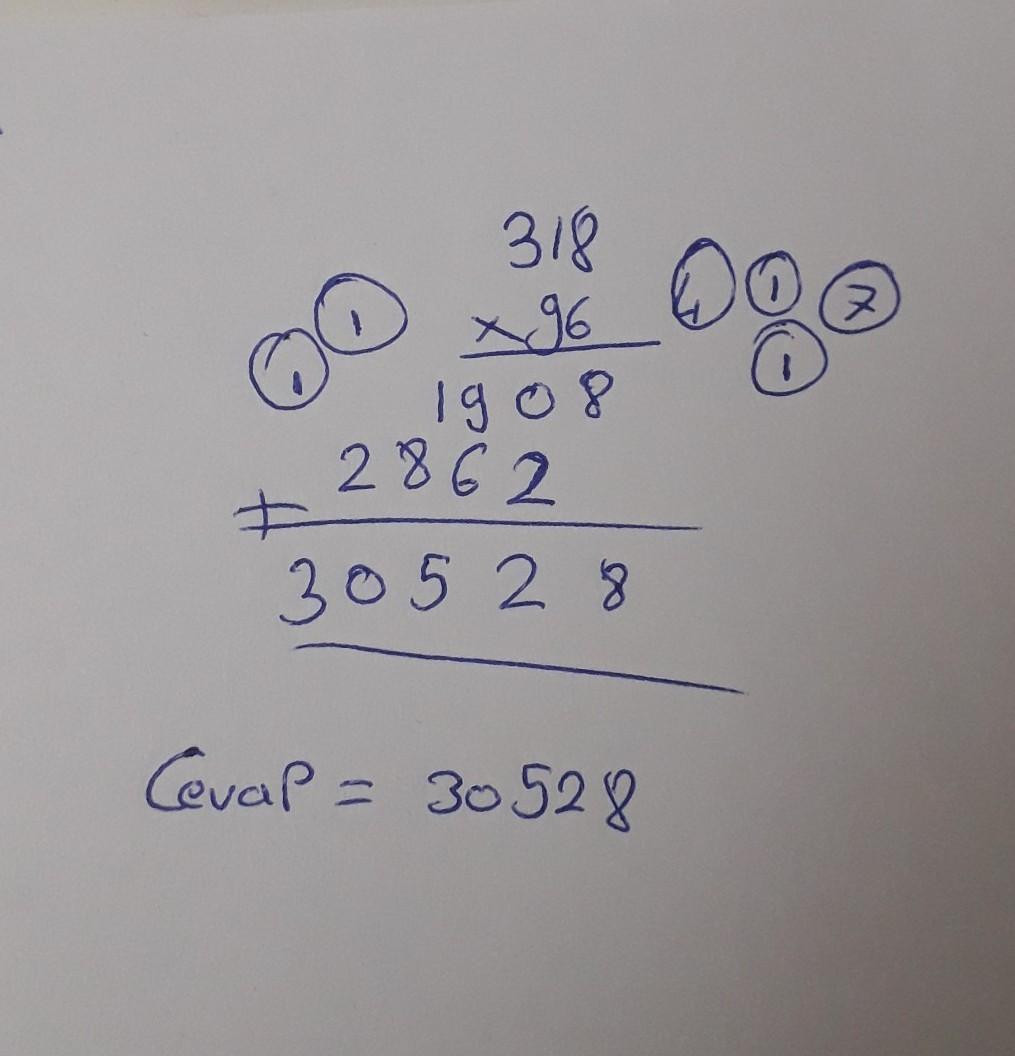 318
① × 96 ④ ① ⑦
① ①
1908
+ 2862
30528
Cevap = 30528